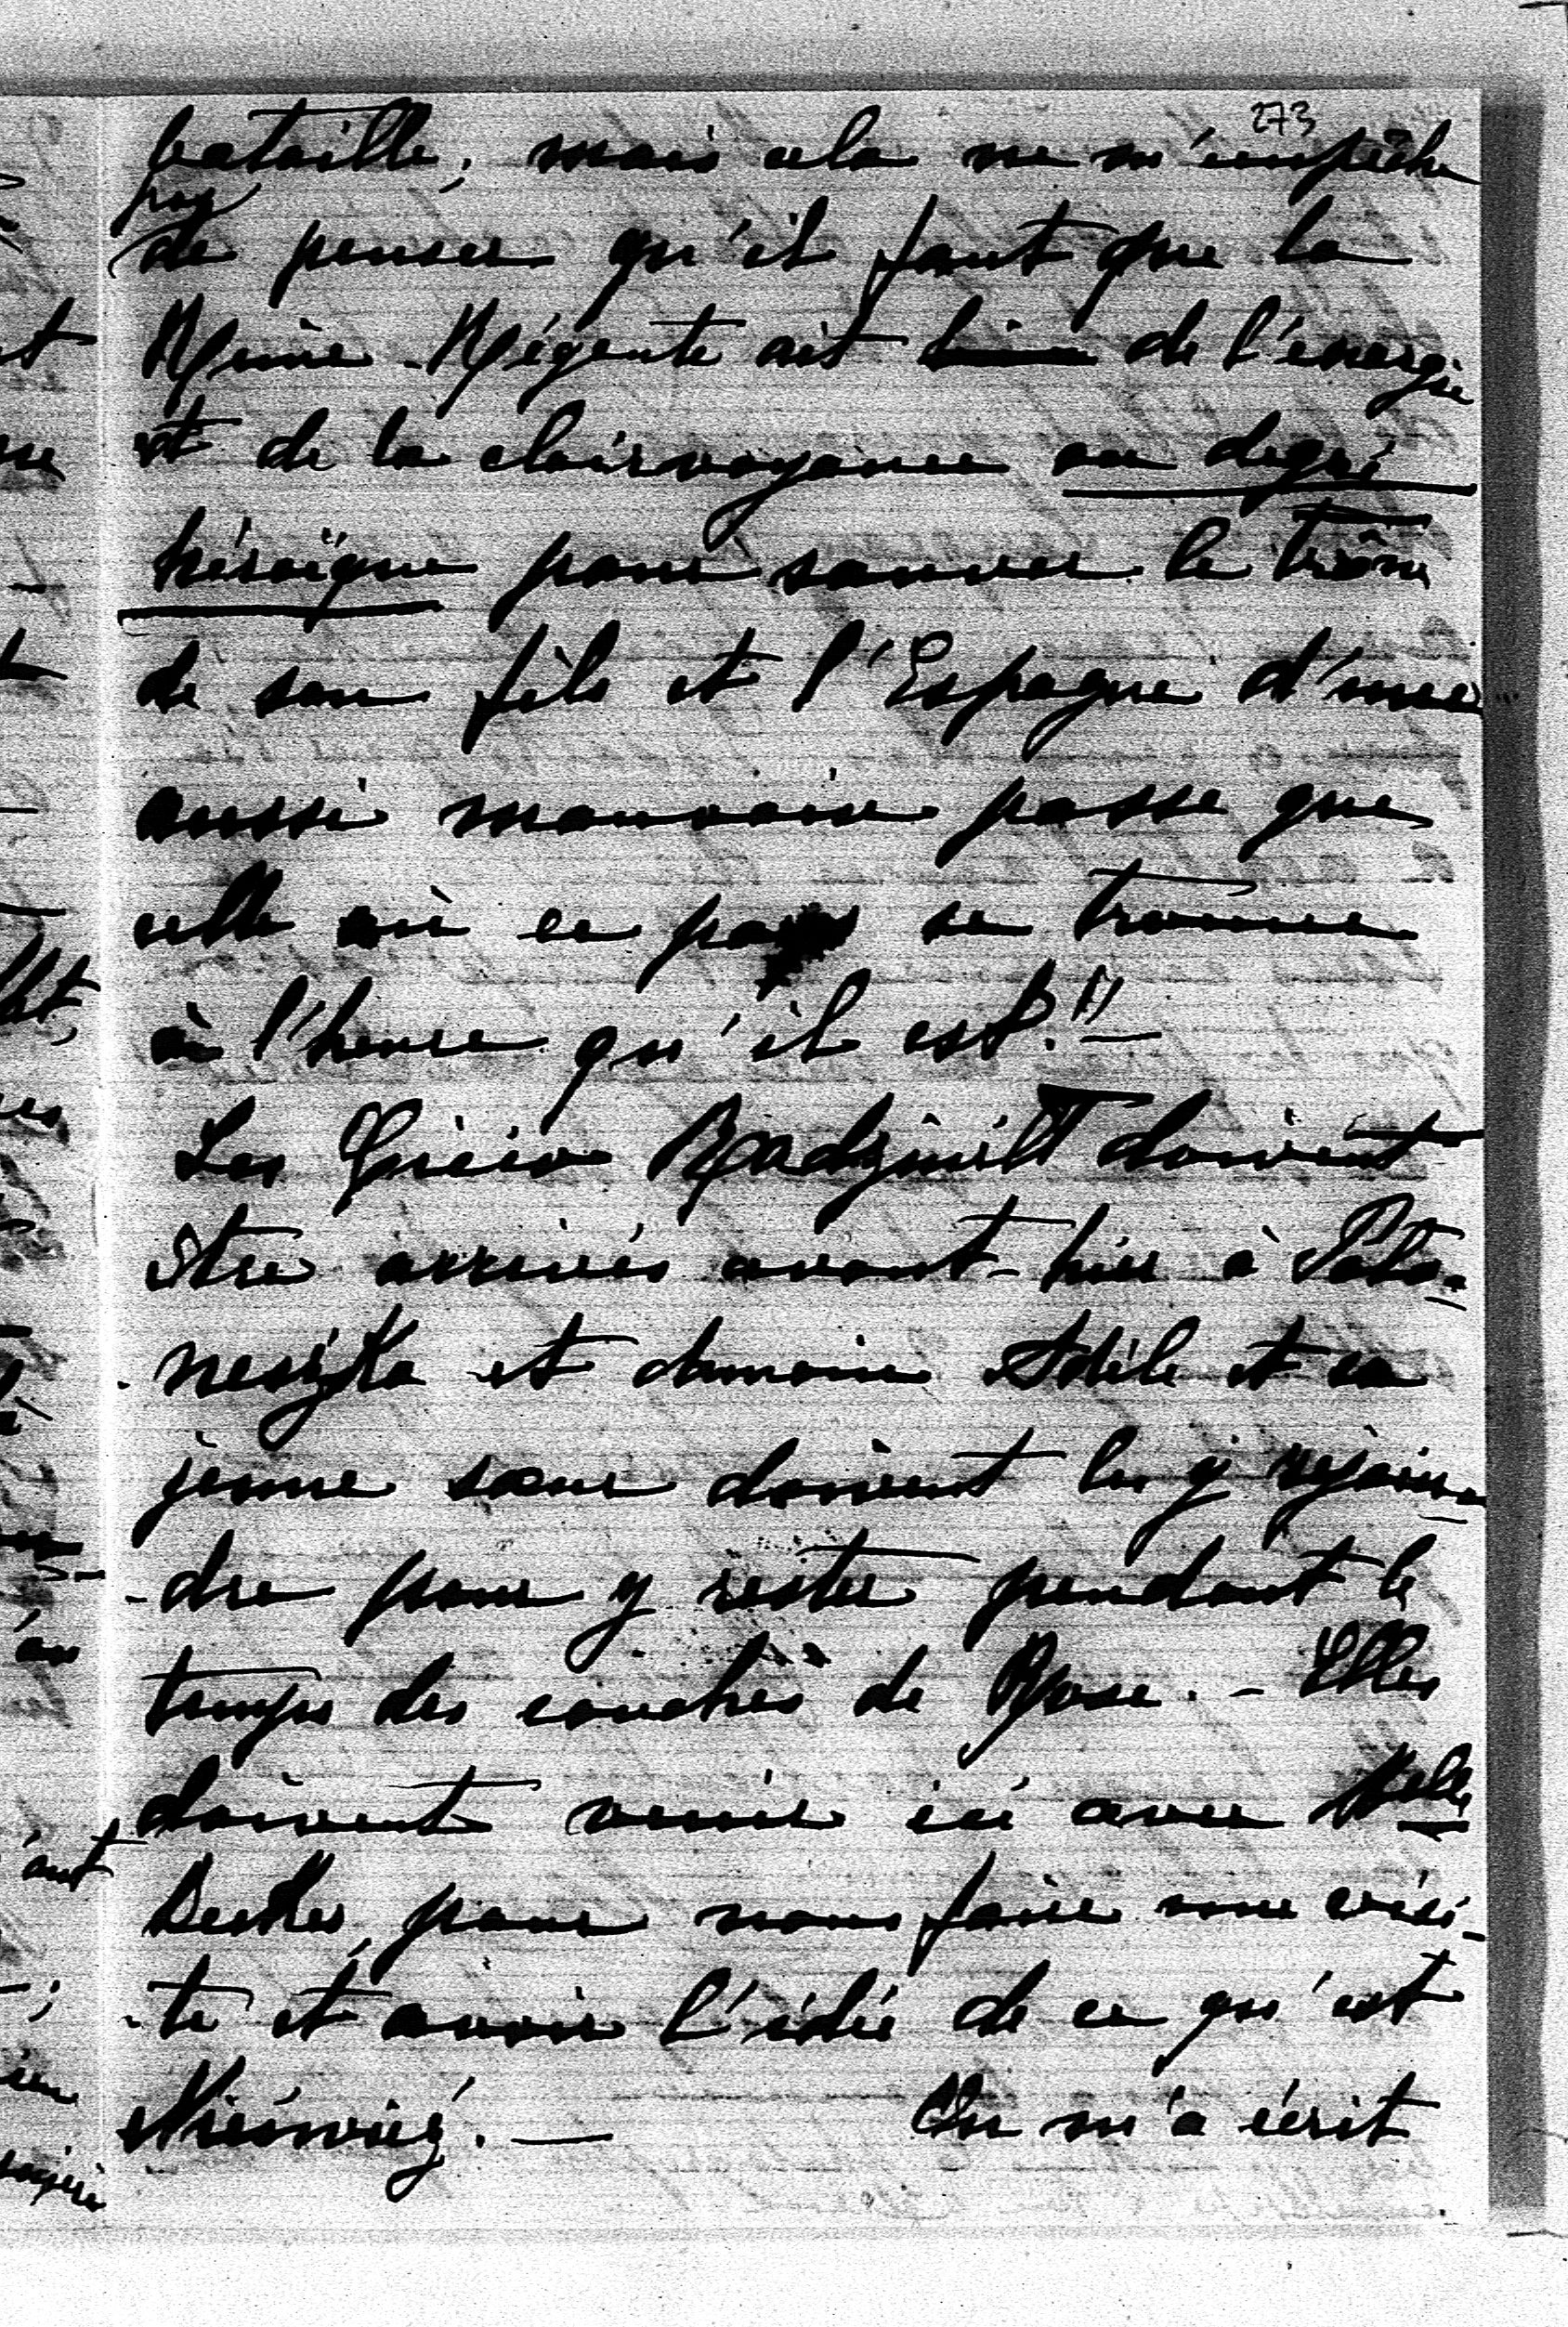 273
bataille; mais cela ne m'empêche
pas
de penser qu'il faut que la
Reine-Régente ait de l'énergie
et de la clairvoyance au degré
héroïque pour sauver le trône
de son fils et l'Espagne d'une
aussi mauvaise passe que
celle où ce pays se trouve
à l'heure qu'il est!!—
Les Radziwill doivent
être arrivés avant-hier à Poło-
-neczka et demain Adèle et sa
jeune sœur doivent les y rejoin-
-dre pour y rester pendant le
temps des couches de Rose. - Elles
doivent venir ici avec Melle
pour nous faire une visi-
-te et avoir l'idée de ce qu'est
Nieśwież. — On m'a écrit